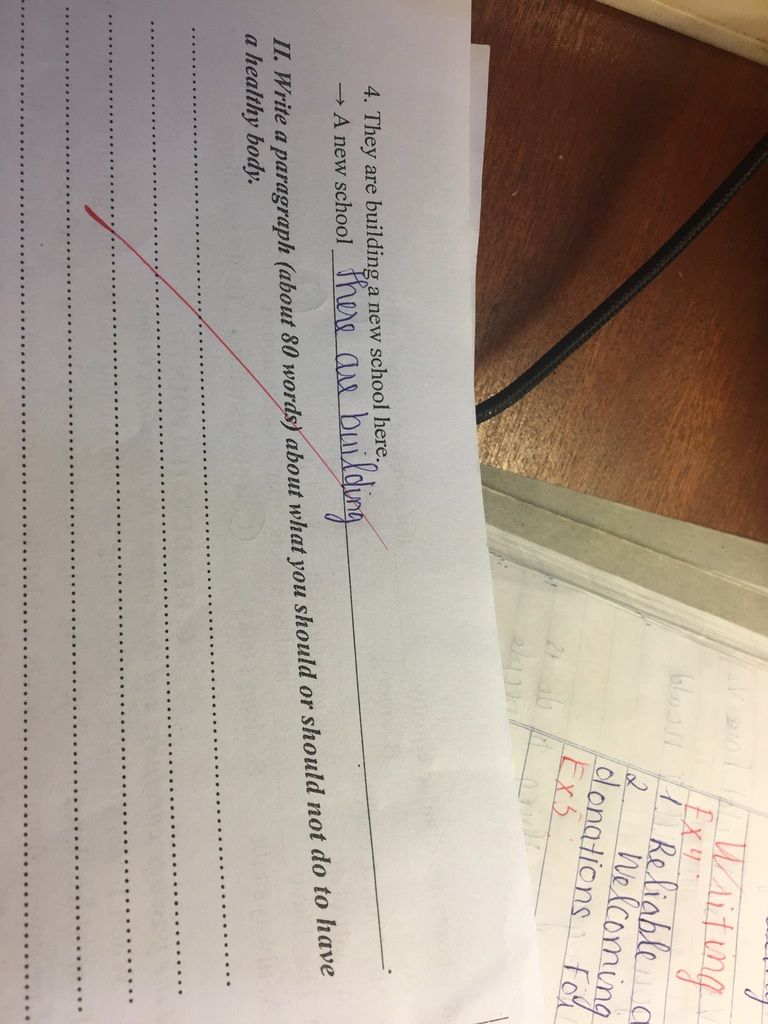 4. They are building a new school here.
→ A new school there are building
II. Write a paragraph (about 80 words) about what you should or should not do to have
a healthy body.
Writing
Ex4:
1 Reliable
2 Welcoming
donations For
Ex5